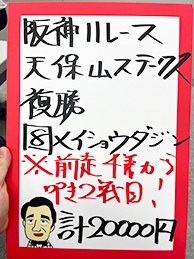 阪神11レース
天保山ステークス
複勝
⑧メイショウダジン
※前走千葉から
叩き2戦目!
計20000円